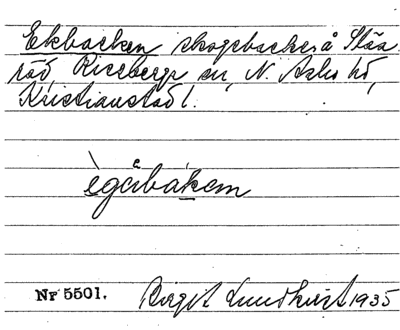 Ekbacken skogsbacke å Stää
röd, Riseberga sn, N. Åsbo hd,
Kristianstad l.
ègåbákem
Nr 5501. Birgit Lundkvist 1935